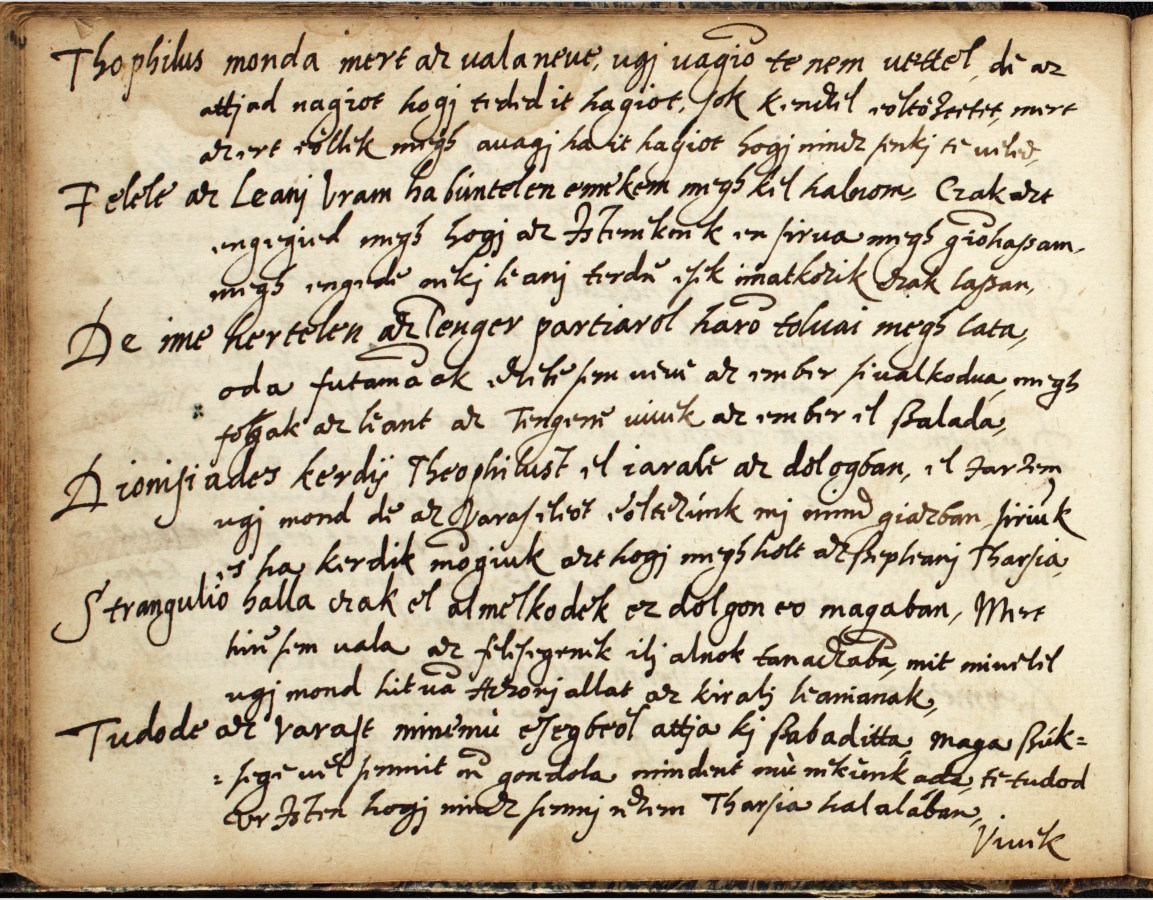 Thophilus monda mert az vala neve, ugj vagiō te nem vettel, de az
attjad nagiot hogj teded it hagiot, sok kendel eoltoztetet, mert
azert eöllek megh avagj ha it hagiot hogj nincz senkj te veled,
Felele az Leanj Vram ha büntelen ennekem megh kel halnom, Czak azt
engegied megh hogj az Istenēkōnk en sirva megh giōhassam,
megh engede nekj leanj terdre esek imatkozik czak lassan,
De ime hertelen az Tenger partiarol harō toluai megh lata,
oda futamāak elete sem veve az ember sivalkodva, megh
fogak az leant az Tengere vivek az ember el szalada,
Dionisiades kerdij Theophilust el iarale az dologban, el Jarzem
ugj mond de az Varas eleot eoltezünk mj mind giazban siriuk
es ha kerdik mōgiuk azt hogj megh holt az szep leanj Tharsia,
Strangulio halla czak el almelkodek ez dolgon eo magaban, Mert
hire sem vala az felesegenek ilj alnok tanaczaba, mit mivelel
ugj mond hitvā Azonj allat az kiralj leanianak,
Tudode az varast minemü ehsegbeol attja kj szabaditta, maga szük=
=segevel semmit nē gondola mindent mü nekünk ada, te tudod
Vr Isten hogj nincz semmj rezem Tharsia halalában,
Vivek